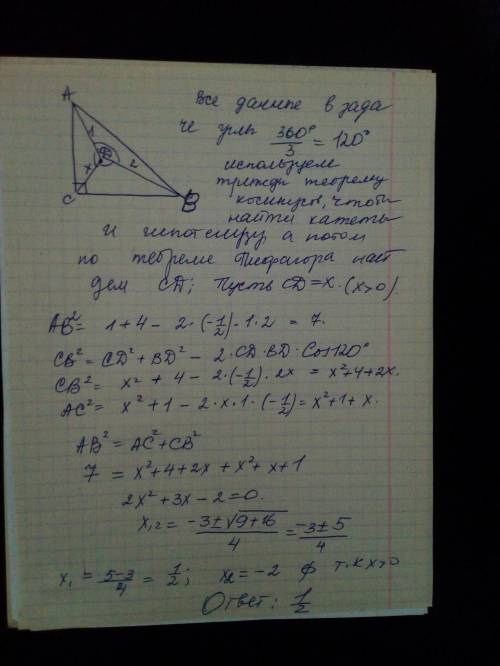 A
1
2
x
C
B
Все данные в зада
че углы 360°/3 = 120°
используем
трижды теорему
косинусов, чтобы
найти катеты
и гипотенузу, а потом
по теореме Пифагора най
дем CD; Пусть CD = x. (x>0).
AB² = 1+4 - 2·(-1/2)·1·2 = 7.
CB² = CD² + BD² - 2·CD·BD·Cos120°
CB² = x² + 4 - 2·(-1/2)·2x = x²+4+2x.
AC² = x² + 1 - 2·x·1·(-1/2) = x²+1+x.
AB² = AC² + CB²
7 = x²+4+2x + x²+x+1
2x² + 3x - 2 = 0.
x₁,₂ = (-3±√(9+16))/4 = (-3±5)/4
x₁ = (5-3)/4 = 1/2; x₂ = -2 ф т.к x>0
Ответ: 1/2